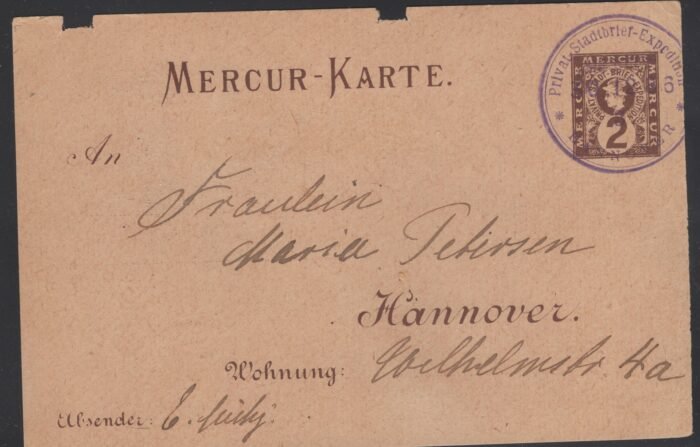 MERCUR-KARTE.
Privat-Stadtbrief-Expedition
MERCUR
MERCUR
MERCUR
PRIVAT-STADT-BRIEF-EXPEDITION
2
An
Fräulein
Maria Petersen
Hannover.
Wohnung: Wilhelmstr. 4a
Absender: E.